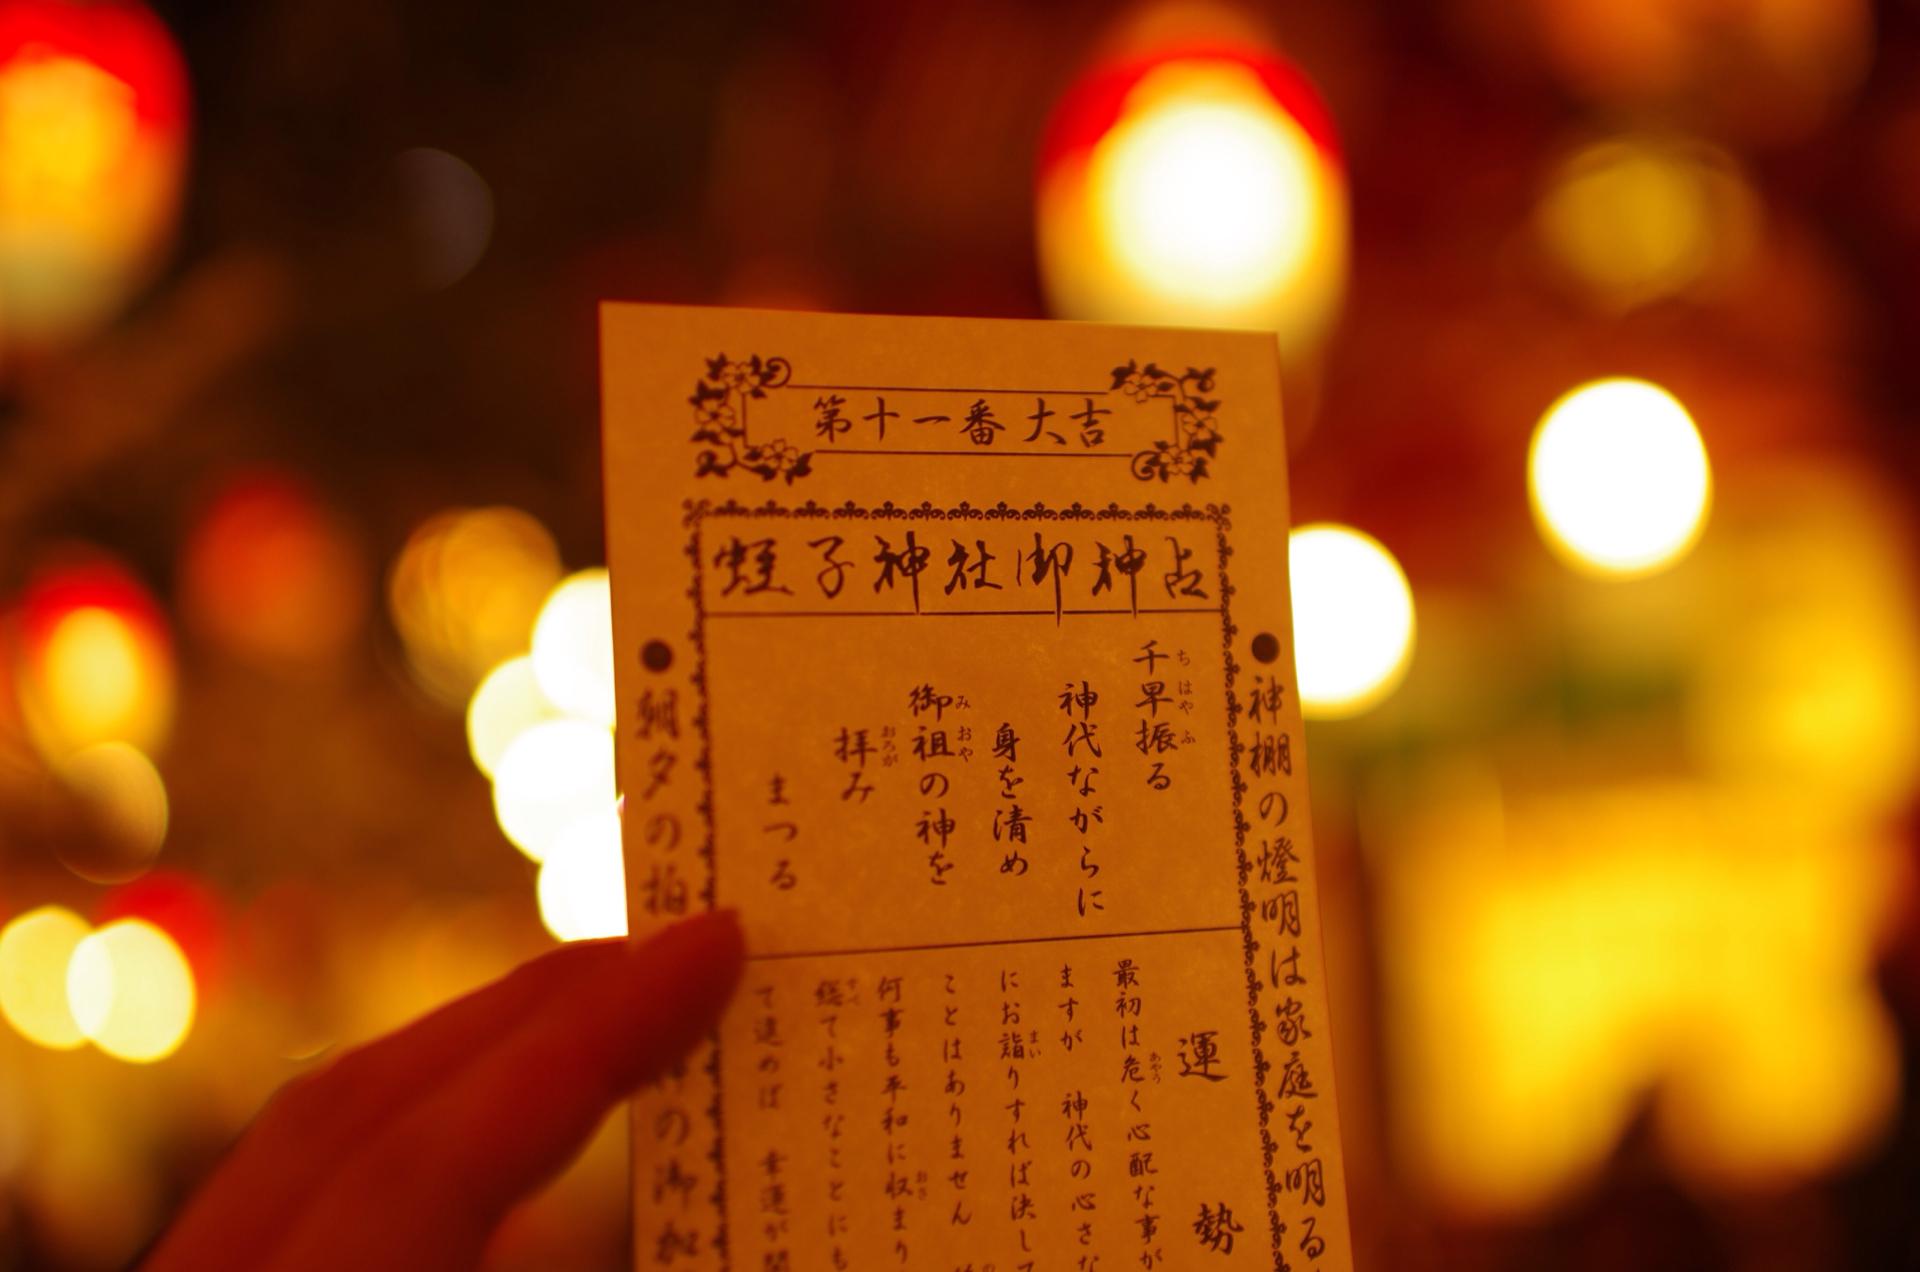 第十一番 大吉
蛭子神社御神占
●神棚の燈明は家庭を明る
千早振る
ちはやふ
神代ながらに
身を清め
御祖の神を
みおや
拝み
おろが
まつる
運勢
最初は危く心配な事が
あやう
ますが 神代の心さな
にお詣りすれば決して
まい
ことはありません
何事も平和に収まり
おさ
総て小さなことにも
すべ
て進めば 幸運が開
●朝夕の拍
の御加